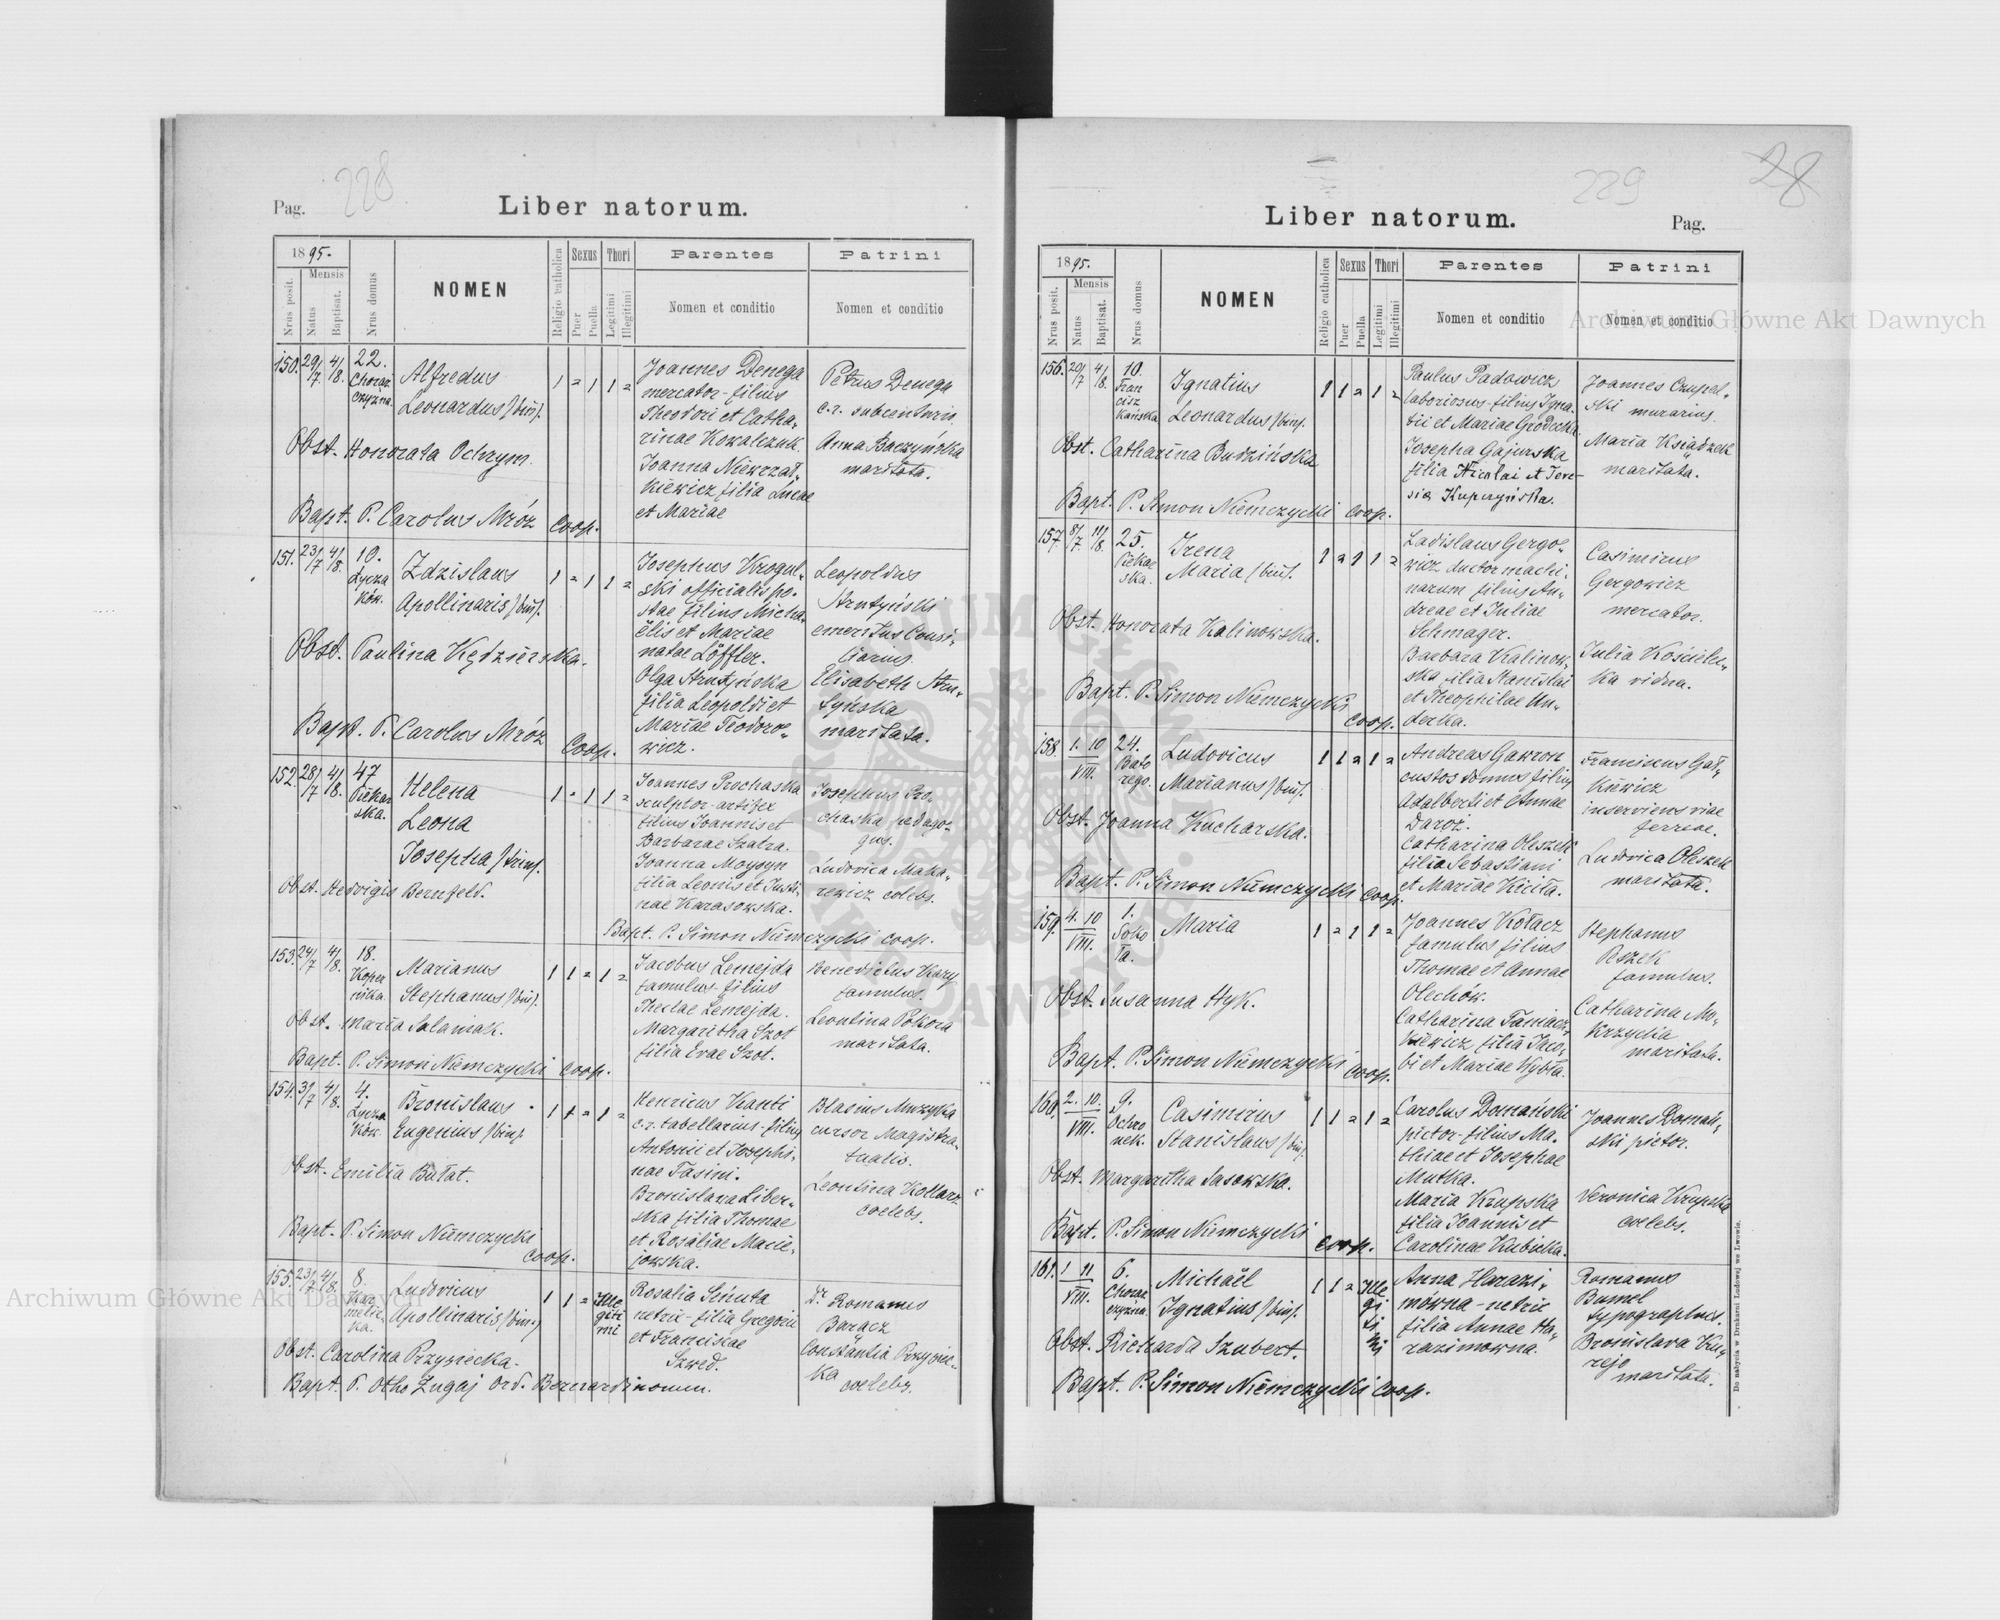 228
Pag.
Liber natorum.
1895.
Mensis
Nrus posit.
Natus
Baptisat.
Nrus domus
NOMEN
Religio catholica
Sexus
Puer
Puella
Thori
Legitimi
Illegitimi
Parentes
Nomen et conditio
Patrini
Nomen et conditio
150. 29/7 4/8. 22. Chorąż czyzna.
Alfredus
Leonardus /bin/.
1 = 1 1 =
Obst. Honorata Ochrym.
Bapt. P. Carolus Mróz Coop.
Joannes Denega
mercator - filius
Theodori et Catha-
rinae Kowalczuk.
Joanna Niewrzał-
kiewicz filia Lucae
et Mariae
Petrus Denega
c.r. subcenturio.
Anna Baczyńska
maritata.
151. 23/7 4/8. 10. Łycza ków.
Zdzislaus
Apollinaris /bin/.
1 = 1 1 =
Obst. Paulina Kędzierska.
Bapt. P. Carolus Mróz Coop.
Josephus Krogul-
ski officialis po-
stae filius Micha-
ëlis et Mariae
natae Löffler.
Olga Strutyńska
filia Leopoldi et
Mariae Teodoro-
wicz.
Leopoldus
Strutyński
emeritus Consi-
liarius.
Elisabeth Stru-
tyńska
maritata.
152. 28/7 4/8. 47 Piekar ska.
Helena
Leona
Josepha /trin/.
1 = 1 1 =
Obst. Hedvigis Bernfeld.
Joannes Prochaska
sculptor-artifex
filius Joannis et
Barbarae Szatra.
Joanna Moysyn
filia Leonis et Justi-
nae Karasowska.
Bapt. P. Simon Niemczycki coop.
Josephus Pro-
chaska pedago-
gus.
Ludovica Maka-
rewicz coelebs.
153. 24/7 4/8. 18. Koper nika.
Marianus
Stephanus /bin/.
1 1 = 1 =
Obst. Maria Salamak.
Bapt. P. Simon Niemczycki coop.
Jacobus Lemejda
famulus - filius
Theclae Lemejda.
Margaritha Szot
filia Evae Szot.
Benedictus Kary
famulus.
Leontina Pokora
maritata.
154. 31/7 4/8. 4. Łycza ków.
Bronislaus
Eugenius /bin/.
1 1 = 1 =
Obst. Emilia Bułat.
Bapt. P. Simon Niemczycki
coop.
Henricus Kanti
c.r. tabellarius - filius
Antonii et Josephi-
nae Tasini.
Bronislava Liber-
ska filia Thomae
et Rosaliae Macie-
jowska.
Blasius Muzyka
cursor Magistra-
tualis.
Leontina Kollarz
coelebs.
155. 23/7 4/8. 8. Kar melic ka.
Ludovicus
Apollinaris /bin./
1 1 = Ille giti mi
Obst. Carolina Przysiecka.
Bapt. P. Otho Zugaj Ord. Bernardinorum.
Rosalia Sieńuta
netric - filia Gregorii
et Franciscae
Szwed.
Dr Romanus
Barącz
Constantia Przysiec-
ka coelebs.
28
229
Liber natorum.
Pag.
1895.
Mensis
Nrus posit.
Natus
Baptisat.
Nrus domus
NOMEN
Religio catholica
Sexus
Puer
Puella
Thori
Legitimi
Illegitimi
Parentes
Nomen et conditio
Patrini
Nomen et conditio
156. 20/7 4/8. 10. Fran cisz kańska
Ignatius
Leonardus /bin/.
1 1 = 1 =
Obst. Catharina Budzińska
Bapt. P. Simon Niemczycki coop.
Paulus Padowicz
laboriosus - filius Igna-
tii et Mariae Grodecka.
Josepha Gajurska
filia Nicolai et Tere-
siae Kupczyńska.
Joannes Czupal-
ski murarius.
Maria Książek
maritata.
157. 8/7 11/8. 25. Piekar ska.
Irena
Maria /bin/.
1 = 1 1 =
Obst. Honorata Kalinowska.
Bapt. P. Simon Niemczycki
coop.
Ladislaus Gergo-
wicz ductor machi-
narum filius An-
dreae et Juliae
Schmager.
Barbara Kalinow-
ska filia Stanislai
et Theophilae Un-
derka.
Casimirus
Gergowicz
mercator.
Julia Kościelec-
ka vidua.
158. 1. 10 VIII. 24. Bato rego.
Ludovicus
Marianus /bin/.
1 1 = 1 =
Obst. Joanna Kucharska.
Bapt. P. Simon Niemczycki coop.
Andreas Gawron
custos domus filius
Adalberti et Annae
Daroż.
Catharina Oleszek
filia Sebastiani
et Mariae Kiciła.
Franciscus Gał-
kiewicz
inserviens viae
ferreae.
Ludovica Oleszek
maritata.
159. 4. 10 VIII. 1. Soko ła.
Maria
1 = 1 1 =
Obst. Susanna Hyk.
Bapt. P. Simon Niemczycki
coop.
Joannes Kołacz
famulus filius
Thomae et Annae
Olechów.
Catharina Taniacz-
kiewicz filia Jaco-
bi et Mariae Kybła.
Stephanus
Peszek
famulus.
Catharina Mo-
krzycka
maritata.
160. 2. 10. VIII. 9. Ochro nek.
Casimirus
Stanislaus /bin/.
1 1 = 1 =
Obst. Margaritha Sasowska.
Bapt. P. Simon Niemczycki coop.
Carolus Domański
pictor - filius Ma-
thiae et Josephae
Mutka.
Maria Krupska
filia Joannis et
Carolinae Kubicka.
Joannes Domań-
ski pictor.
Veronica Krupska
coelebs.
161. 1. 11 VIII. 6. Chorąż czyzna.
Michaël
Ignatius /bin/.
1 1 = Ille gi ti mi
Obst. Richarda Szubert.
Bapt. P. Simon Niemczycki Coop.
Anna Harazi-
mówna - netric
filia Annae Ha-
razimowna.
Romanus
Bumel
typographus.
Bronislava Ku-
rejo
maritata.
Do nabycia w Drukarni Ludowej we Lwowie.
Archiwum Główne Akt Dawnych
Archiwum Główne Akt Dawnych